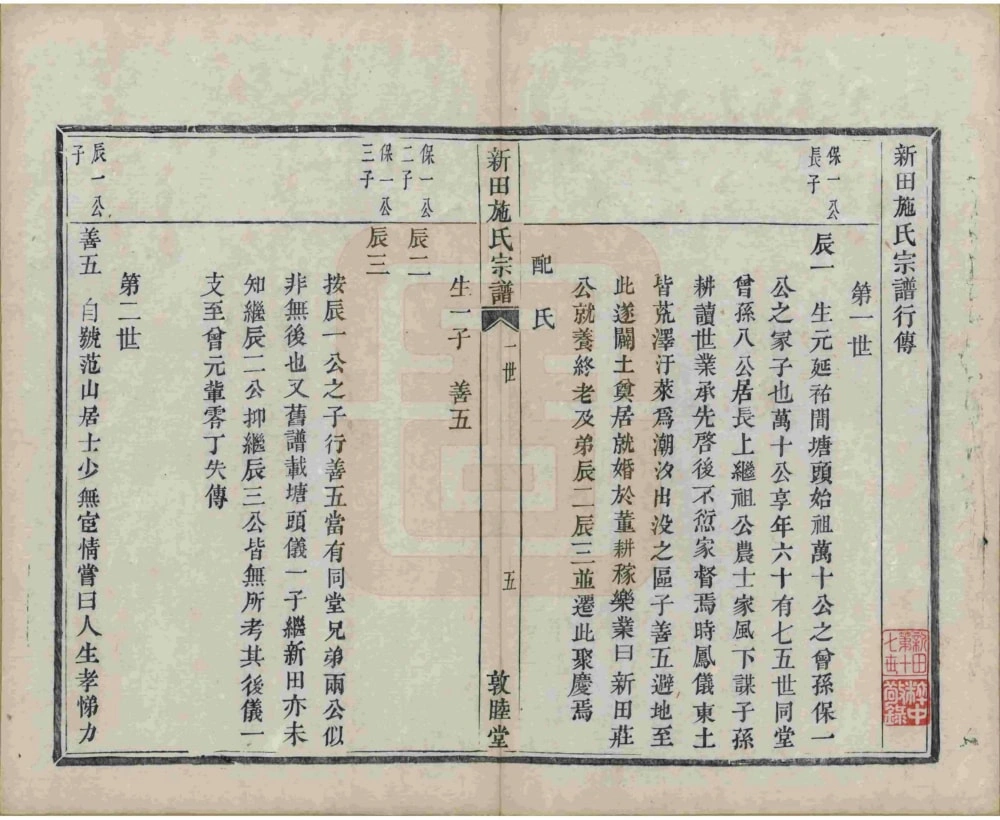 新田施氏宗譜行傳
第一世
保一公
長子
辰一　生元延祐間塘頭始祖萬十公之曾孫保一
公之冢子也萬十公享年六十有七五世同堂
曾孫八公居長上繼祖公農士家風下謀子孫
耕讀世業承先啓後不愆家督焉時鳳儀東土
皆荒澤汙萊爲潮汐出没之區子善五避地至
此遂闢土奠居就婚於董耕稼樂業曰新田莊
公就養終老及弟辰二辰三並遷此聚慶焉
配氏
新田施氏宗譜
一世
五
敦睦堂
生一子　善五
保一公
二子
辰二
保一公
三子
辰三
按辰一公之子行善五當有同堂兄弟兩公似
非無後也又舊譜載塘頭儀一子繼新田亦未
知繼辰二公抑繼辰三公皆無所考其後儀一
支至曾元輩零丁失傳
第二世
辰一公
子
善五　自號范山居士少無宦情嘗曰人生孝悌力
新田
第十
七世
梓中
敬錄